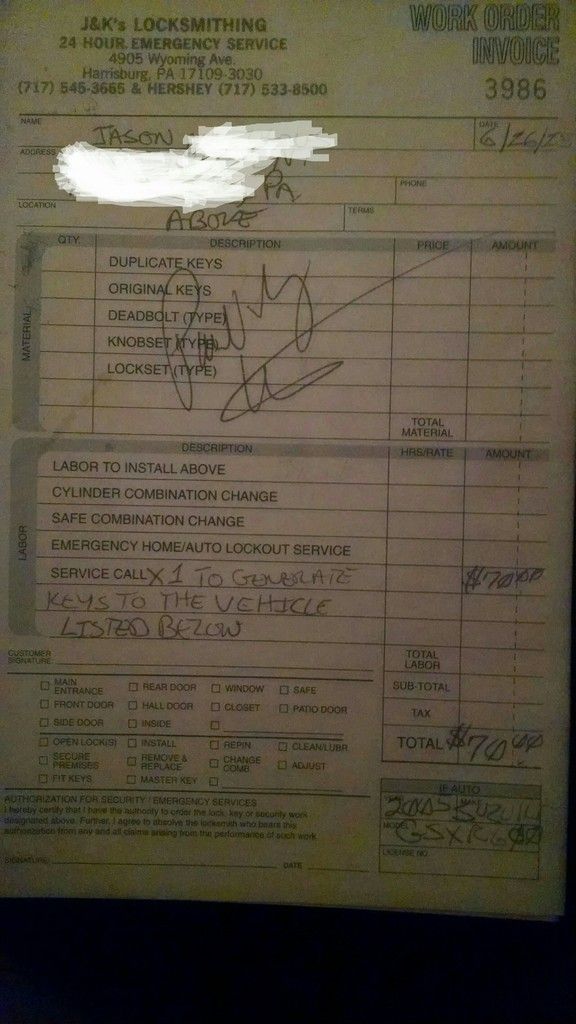 J&K's LOCKSMITHING
24 HOUR EMERGENCY SERVICE
4905 Wyoming Ave.
Harrisburg, PA 17109-3030
(717) 545-3665 & HERSHEY (717) 533-8500
WORK ORDER
INVOICE
3986
NAME
JASON
DATE
6/26/
ADDRESS
PA
PHONE
LOCATION
ABOVE
TERMS
QTY. DESCRIPTION PRICE AMOUNT
MATERIAL
DUPLICATE KEYS
ORIGINAL KEYS
DEADBOLT (TYPE)
KNOBSET (TYPE)
LOCKSET (TYPE)
TOTAL
MATERIAL
DESCRIPTION HRS/RATE AMOUNT
LABOR
LABOR TO INSTALL ABOVE
CYLINDER COMBINATION CHANGE
SAFE COMBINATION CHANGE
EMERGENCY HOME/AUTO LOCKOUT SERVICE
SERVICE CALL X 1 TO GENERATE $70.00
KEYS TO THE VEHICLE
LISTED BELOW
CUSTOMER
SIGNATURE:
TOTAL
LABOR
SUB-TOTAL
TAX
TOTAL $70.00
MAIN
ENTRANCE
REAR DOOR
WINDOW
SAFE
FRONT DOOR
HALL DOOR
CLOSET
PATIO DOOR
SIDE DOOR
INSIDE
OPEN LOCK(S)
INSTALL
REPIN
CLEAN/LUBR.
SECURE
PREMISES
REMOVE &
REPLACE
CHANGE
COMB
ADJUST
FIT KEYS
MASTER KEY
AUTHORIZATION FOR SECURITY / EMERGENCY SERVICES
I hereby certify that I have the authority to order the lock, key or security work
designated above. Further, I agree to absolve the locksmith who bears this
authorization from any and all claims arising from the performance of such work.
SIGNATURE: DATE
IF AUTO
2005 SUZUKI
MODEL
GSXR600
LICENSE NO.